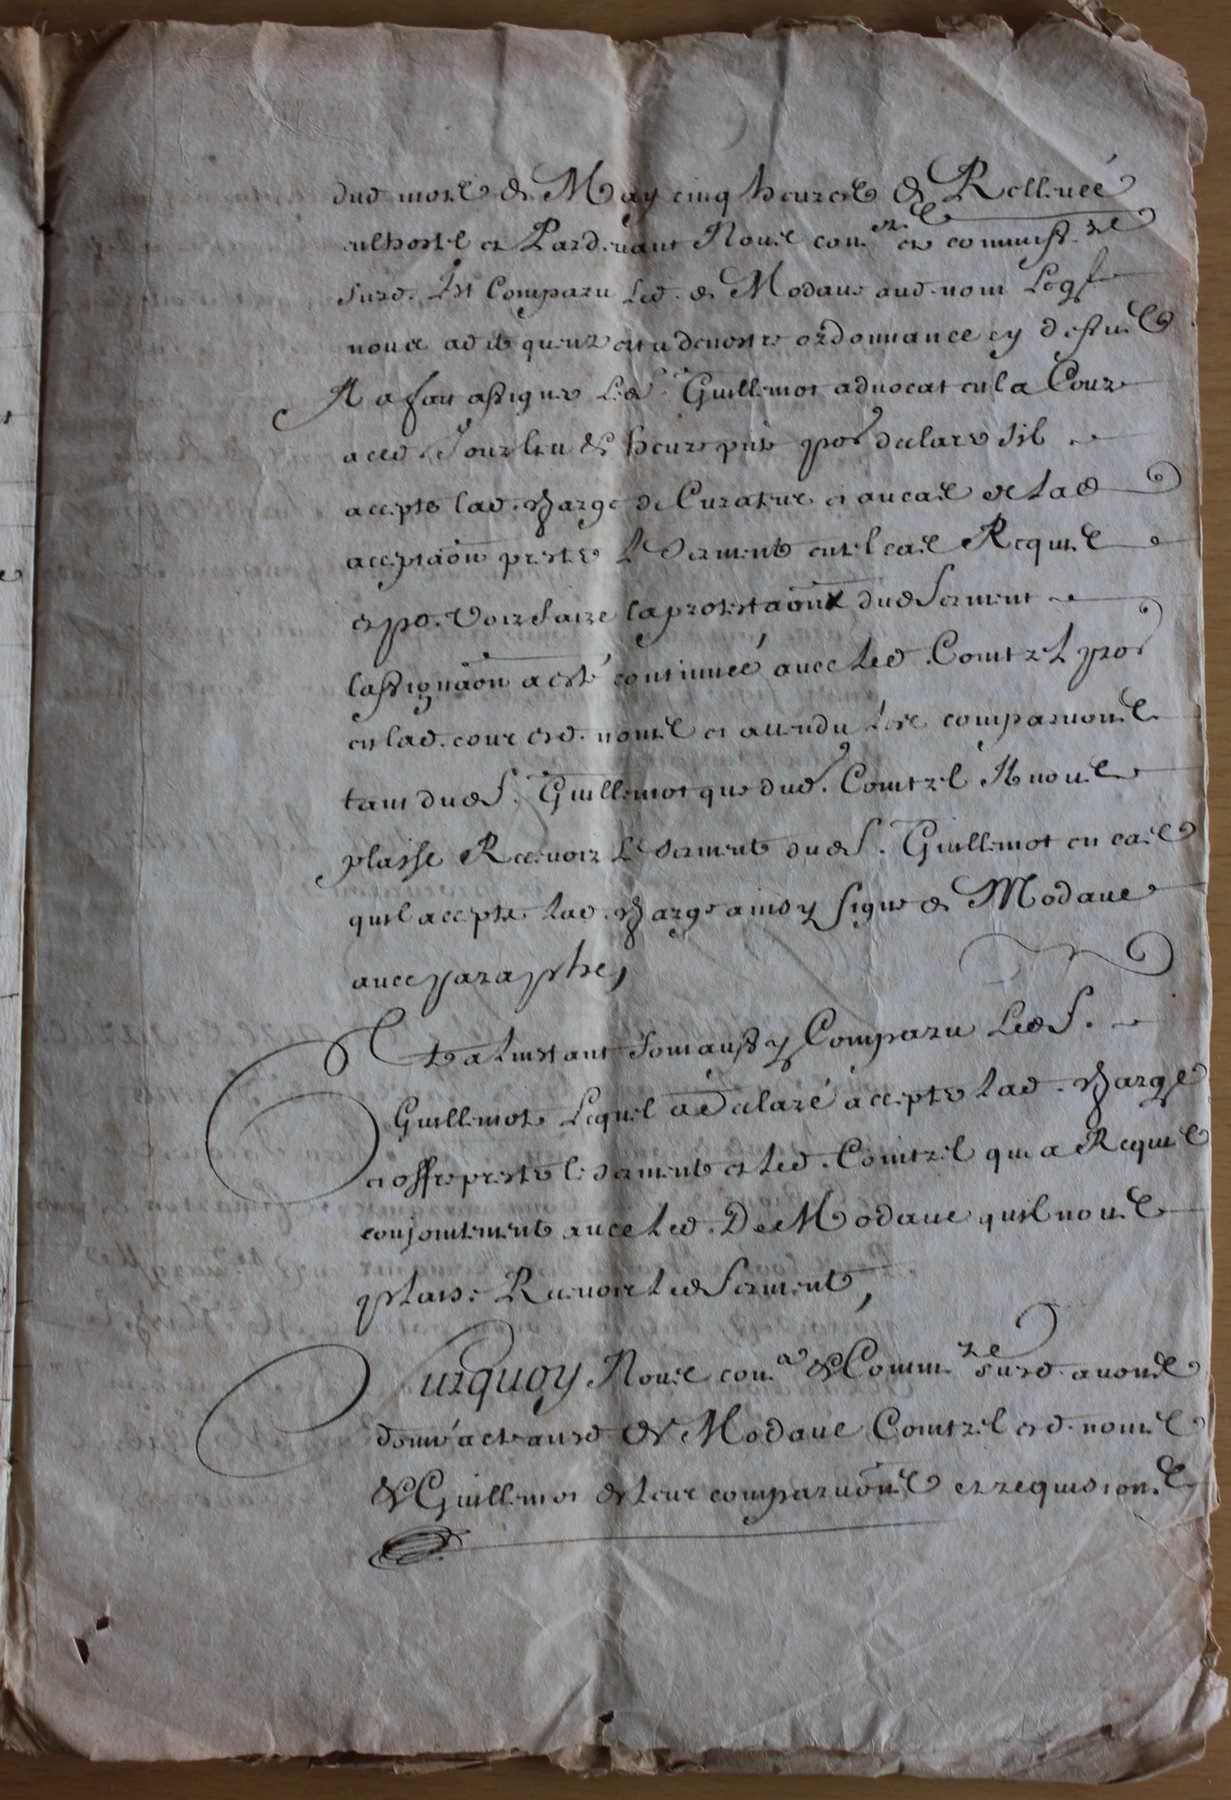 dud. mois de May cinq heures de Rellevéé
enlhostel et Pardevant Nous con.er et commiss.re
surd. Est Comparu Led. de Modave aud. nom Leql
nous a dit quen vertu denostre ordonnance cy dessus
Il a fait assigner Led. Guillemot advocat en la Cour
aced. Jour lieu & heure pnt por declarer sil
accepte lad. charge de Curateur et aucas de lad
acceptaon prester Le serment entel cas Requis
et po. voir faire la protestaon dud Serment
lassignaon a esté continuéé avec led. Comtrel por
en lad. cour esd. noms et attendu les comparuons
tant dud S. Guillemot que dud. Comtrel Il nous
plaisse Recevoir Le serment dud S. Guillemot en cas
quil accepte lad. charge ainsy signe de Modave
avec paraphe,
Et a Linstant Somaussy Comparu Led S.
Guillemot Lequel a declaré accepter lad. charge
et offre prester le serment et led. Comtrel qui a Requis
conjointement avec led. De Modave quil nous
plaise Recevoir led Serment,
Surquoy Nous con.er & Comm.re surd. avons
donné acte ausd de Modave Comtrel esd. noms
& Guillemot de leur comparuons et requisions